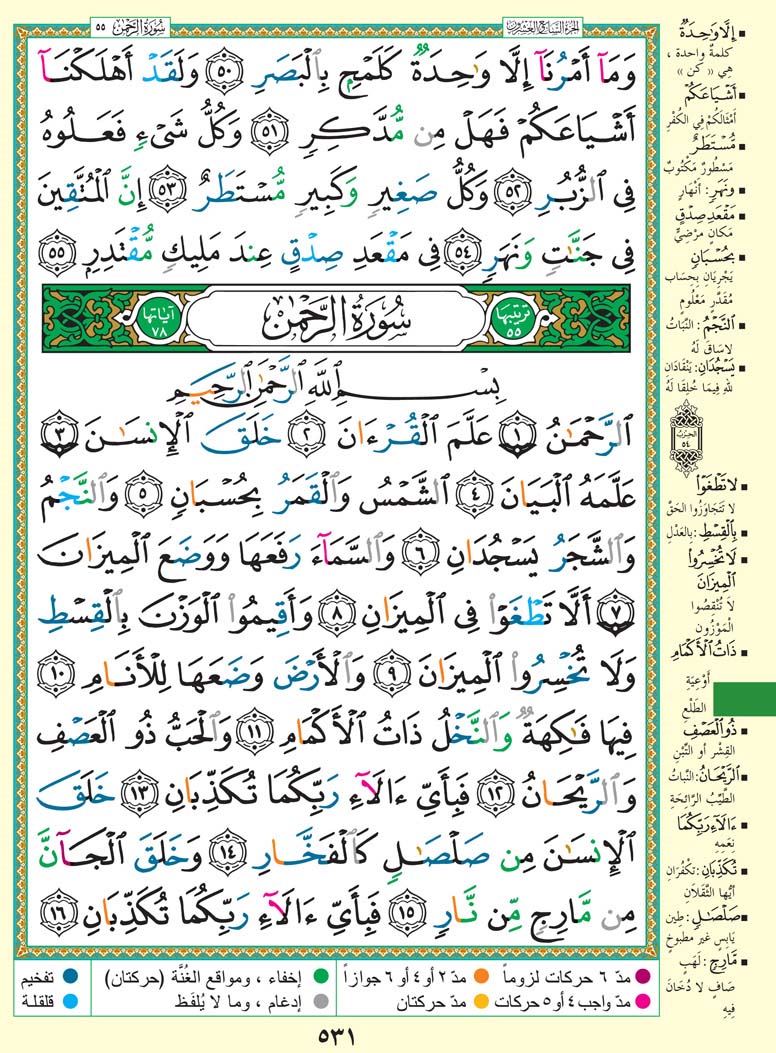 سُورَةُ الرَّحْمٰن ٥٥
الجزء السابع والعشرون
وَمَآ أَمْرُنَآ إِلَّا وَٰحِدَةٌ كَلَمْحٍۭ بِٱلْبَصَرِ ٥٠ وَلَقَدْ أَهْلَكْنَآ
أَشْيَاعَكُمْ فَهَلْ مِن مُّدَّكِرٍ ٥١ وَكُلُّ شَىْءٍ فَعَلُوهُ
فِى ٱلزُّبُرِ ٥٢ وَكُلُّ صَغِيرٍ وَكَبِيرٍ مُّسْتَطَرٌ ٥٣ إِنَّ ٱلْمُتَّقِينَ
فِى جَنَّٰتٍ وَنَهَرٍ ٥٤ فِى مَقْعَدِ صِدْقٍ عِندَ مَلِيكٍ مُّقْتَدِرٍۭ ٥٥
ترتيبها ٥٥ سُورَةُ الرَّحْمٰن آياتها ٧٨
بِسْمِ ٱللَّهِ ٱلرَّحْمَٰنِ ٱلرَّحِيمِ
ٱلرَّحْمَٰنُ ١ عَلَّمَ ٱلْقُرْءَانَ ٢ خَلَقَ ٱلْإِنسَٰنَ ٣
عَلَّمَهُ ٱلْبَيَانَ ٤ ٱلشَّمْسُ وَٱلْقَمَرُ بِحُسْبَانٍ ٥ وَٱلنَّجْمُ
وَٱلشَّجَرُ يَسْجُدَانِ ٦ وَٱلسَّمَآءَ رَفَعَهَا وَوَضَعَ ٱلْمِيزَانَ
٧ أَلَّا تَطْغَوْا۟ فِى ٱلْمِيزَانِ ٨ وَأَقِيمُوا۟ ٱلْوَزْنَ بِٱلْقِسْطِ
وَلَا تُخْسِرُوا۟ ٱلْمِيزَانَ ٩ وَٱلْأَرْضَ وَضَعَهَا لِلْأَنَامِ ١٠
فِيهَا فَٰكِهَةٌ وَٱلنَّخْلُ ذَاتُ ٱلْأَكْمَامِ ١١ وَٱلْحَبُّ ذُو ٱلْعَصْفِ
وَٱلرَّيْحَانُ ١٢ فَبِأَىِّ ءَالَآءِ رَبِّكُمَا تُكَذِّبَانِ ١٣ خَلَقَ
ٱلْإِنسَٰنَ مِن صَلْصَٰلٍ كَٱلْفَخَّارِ ١٤ وَخَلَقَ ٱلْجَآنَّ
مِن مَّارِجٍ مِّن نَّارٍ ١٥ فَبِأَىِّ ءَالَآءِ رَبِّكُمَا تُكَذِّبَانِ ١٦
إِلَّا وَٰحِدَةٌ
كلمةٌ واحدة ،
هي « كن »
أَشْيَاعَكُمْ
أَمْثَالَكُمْ فِي الكُفْرِ
مُّسْتَطَرٌ
مَسْطُورٌ مَكْتُوبٌ
وَنَهَرٍ: أَنْهَار
مَقْعَدِ صِدْقٍ
مَكَانٍ مَرْضِيٍّ
بِحُسْبَانٍ
يَجْرِيَانِ بِحِسَاب
مُقَدَّرٍ مَعْلُومٍ
ٱلنَّجْمُ: النَّبَاتُ
لا سَاقَ لَهُ
يَسْجُدَانِ: يَنْقَادَانِ
للهِ فِيمَا خُلِقَا لَهُ
الحزب
٥٤
لا تَطْغَوْا۟
لا تَتَجَاوَزُوا الحَقَّ
بِٱلْقِسْطِ: بِالعَدْلِ
لَا تُخْسِرُوا۟
ٱلْمِيزَانَ
لا تَنْقُصُوا
المَوْزُون
ذَاتُ ٱلْأَكْمَامِ
أَوْعِيَةِ
الطَّلْعِ
ذُو ٱلْعَصْفِ
القِشْرِ أو التِّبْنِ
ٱلرَّيْحَانُ: النَّبَاتُ
الطَّيِّبُ الرَّائِحَةِ
ءَالَآءِ رَبِّكُمَا
نِعَمِهِ
تُكَذِّبَانِ: تَكْفُرَانِ
أَيُّهَا الثَّقَلَانِ
صَلْصَٰلٍ: طِينٍ
يَابِسٍ غير مطبوخ
مَّارِجٍ: لَهَبٍ
صَافٍ لا دُخَانَ
فِيهِ
مدّ ٦ حركات لزوماً
مدّ ٢ أو ٤ أو ٦ جوازاً
إخفاء ، ومواقع الغُنَّة (حركتان)
تفخيم
مدّ واجب ٤ أو ٥ حركات
مدّ حركتان
إدغام ، وما لا يُلفَظ
قلقلة
٥٣١